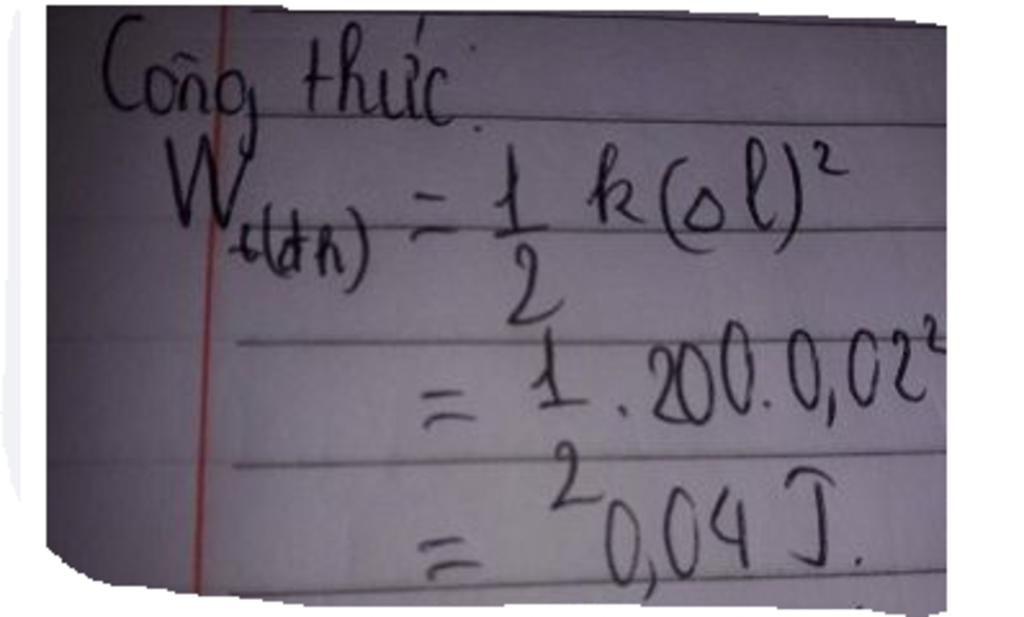 Công thức:
W t(đh) = 1/2 k(Δl)²
= 1/2 . 200. 0,02²
= 0,04 J.